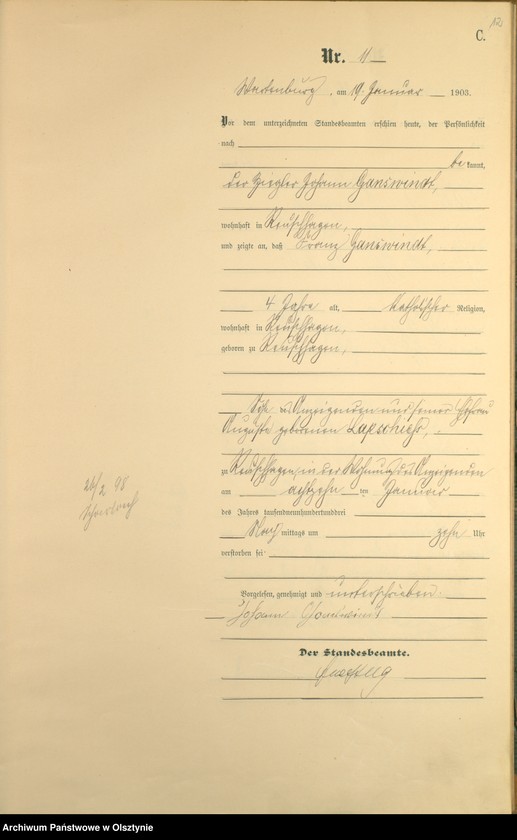 12
C.
Nr. 11
Wartenburg, am 19. Januar 1903.
Vor dem unterzeichneten Standesbeamten erschien heute, der Persönlichkeit
nach
be kannt,
der Ziegler Johann Ganswindt,
wohnhaft in Reuschhagen,
und zeigte an, daß Franz Ganswindt,
4 Jahre alt, katholischer Religion,
wohnhaft in Reuschhagen,
geboren zu Reuschhagen,
Sohn des Anzeigenden und seiner Ehefrau
Auguste geborenen Lapschieß,
zu Reuschhagen, in der Wohnung des Anzeigenden
am achtzehn ten Januar
des Jahres tausendneunhundertunddrei
Nach mittags um zehn Uhr
verstorben sei.
Vorgelesen, genehmigt und unterschrieben.
Johann Ganswindt
Der Standesbeamte.
26/2 98
Archiwum Państwowe w Olsztynie